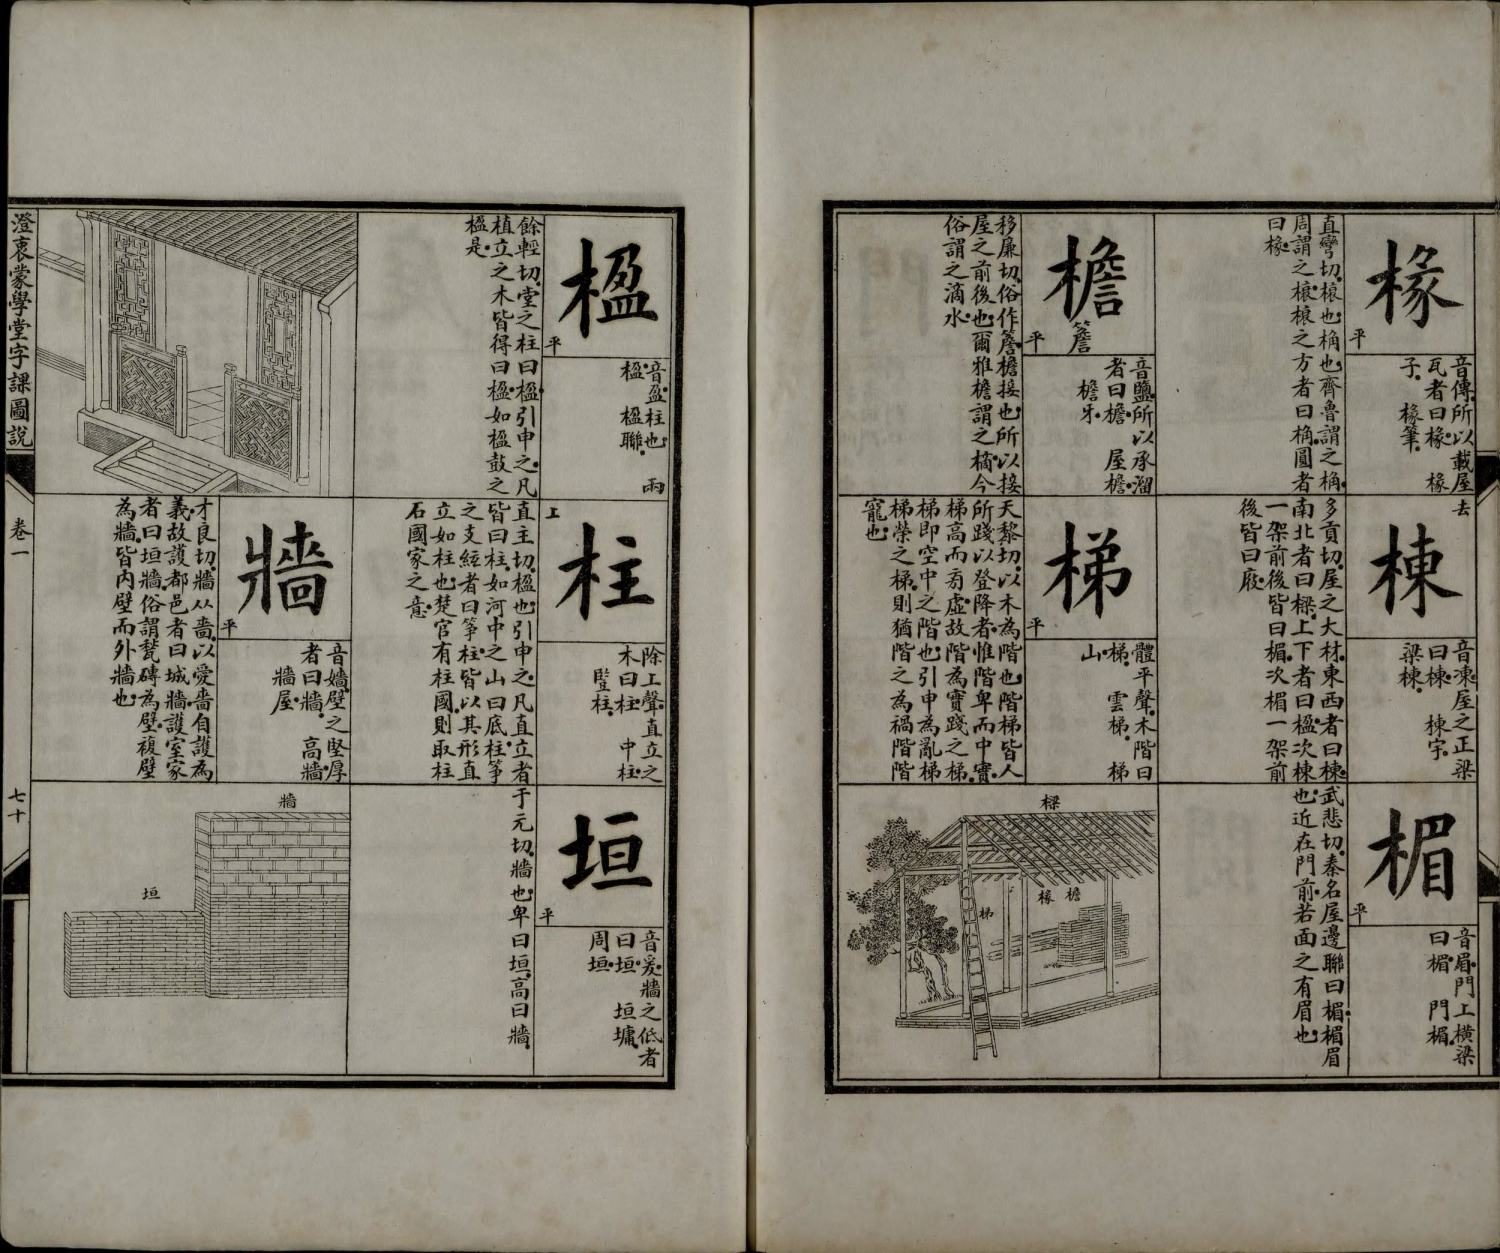 椽
平
音傳所以載屋
瓦者曰椽 椽
子 椽筆
直攣切榱也桷也齊魯謂之桷
周謂之榱榱之方者曰桷圓者
曰椽
棟
去
音凍屋之正梁
曰棟 棟宇
梁棟
多貢切屋之大材東西者曰棟
南北者曰樑上下者曰楹次棟
一架前後皆曰楣次楣一架前
後皆曰庪
楣
平
音眉門上橫梁
曰楣 門楣
武悲切秦名屋邊聯曰楣楣眉
也近在門前若面之有眉也
檐
簷
平
音鹽所以承溜
者曰檐 屋檐
檐牙
移廉切俗作簷檐接也所以接
屋之前後也爾雅檐謂之樀今
俗謂之滴水
梯
平
體平聲木階曰
梯 雲梯 梯
山
天黎切以木為階也階梯皆人
所踐以登降者惟階卑而中實
梯高而有虛故階為實踐之梯
梯即空中之階也引申為亂梯
梯榮之梯則猶階之為禍階階
寵也
樑
檐
椽
梯
楹
平
音盈柱也 兩
楹 楹聯
餘輕切堂之柱曰楹引申之凡
植立之木皆得曰楹如楹鼓之
楹是
柱
上
除上聲直立之
木曰柱 中柱
豎柱
直主切楹也引申之凡直立者
皆曰柱如河中之山曰底柱箏
之支絃者曰箏柱皆以其形直
立如柱也楚官有柱國則取柱
石國家之意
垣
平
音爰牆之低者
曰垣 垣墉
周垣
于元切牆也卑曰垣高曰牆
牆
平
音嬙壁之堅厚
者曰牆 高牆
牆屋
才良切牆从嗇以愛嗇自護為
義故護都邑者曰城牆護室家
者曰垣牆俗謂甃磚為壁複壁
為牆皆內壁而外牆也
牆
垣
澄衷蒙學堂字課圖說
卷一
七十